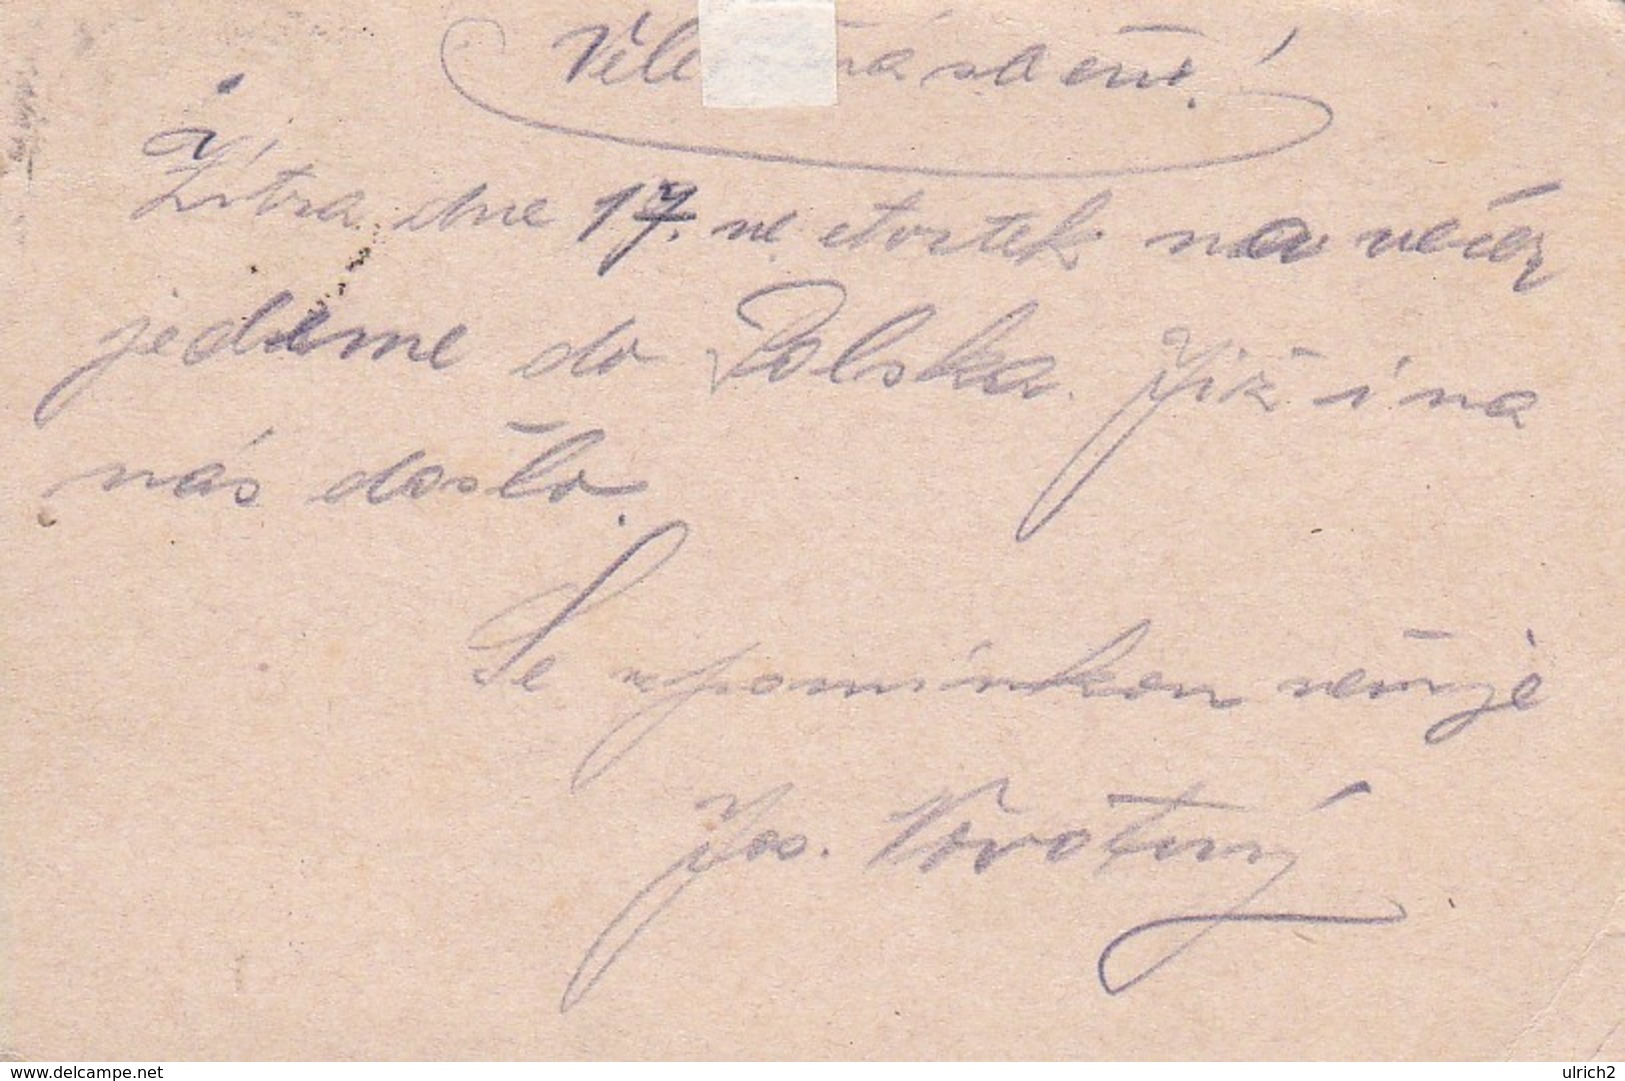 Zítra dne 17. ve čtvrtek na večer
jedeme do Polska. Již i na
nás došlo.
Se vpomínkou
Jos. Novotný
delcampe.net
ulrich2